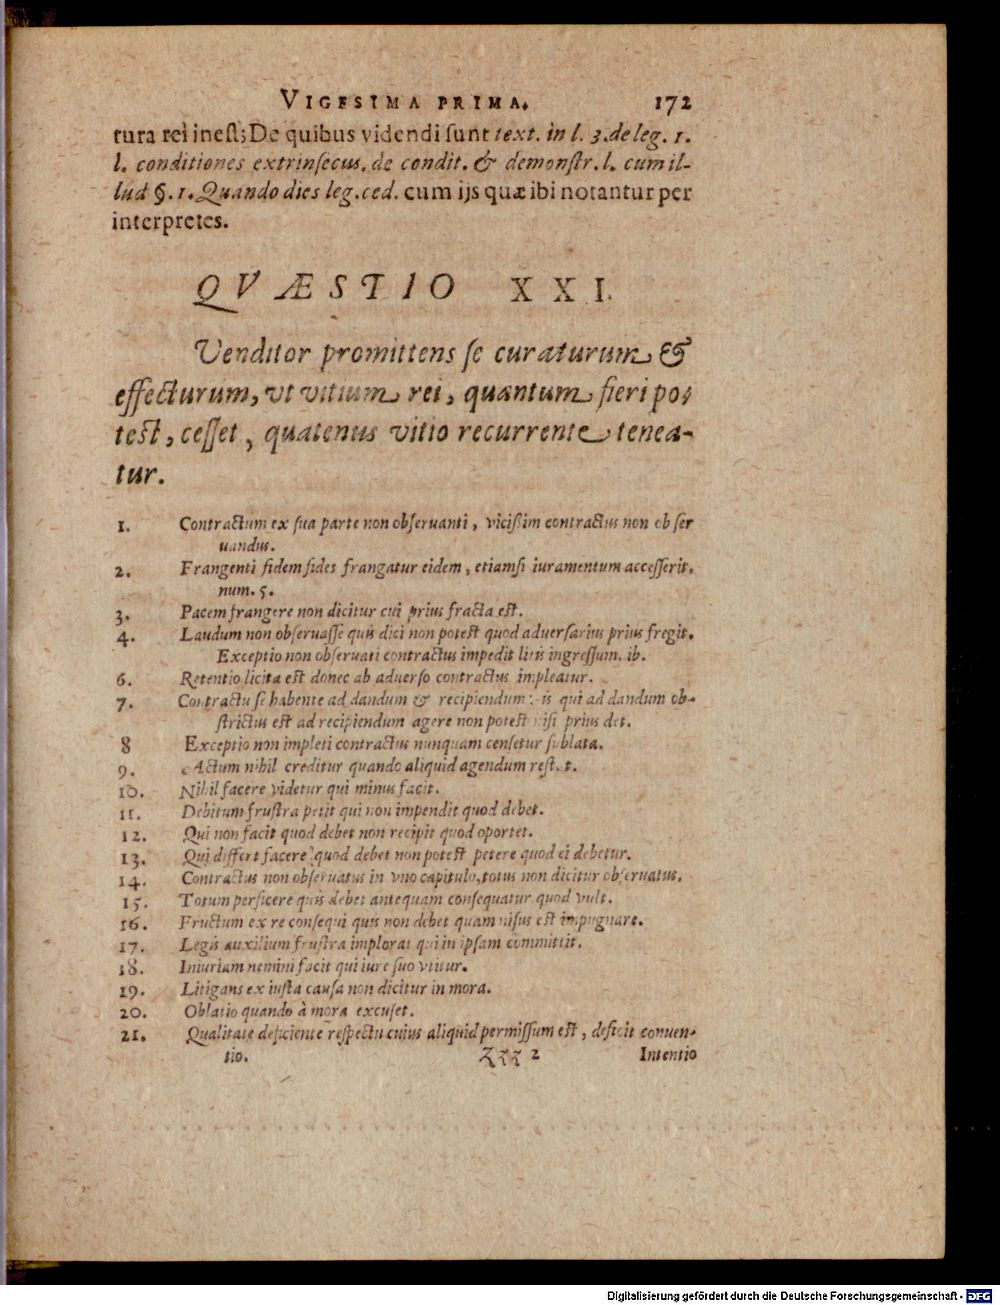 VIGESIMA PRIMA. 172
tura rei inest; De quibus videndi sunt text. in l. 3. de leg. 1.
l. conditiones extrinsecus. de condit. & demonstr. l. cum il-
lud §. 1. Quando dies leg. ced. cum ijs quæ ibi notantur per
interpretes.
QVÆSTIO XXI.
Venditor promittens se curaturum &
effecturum, vt vitium rei, quantum fieri po-
test, cesset, quatenus vitio recurrente tenea-
tur.
1. Contractum ex sua parte non obseruanti, vicissim contractus non obser
uandus.
2. Frangenti fidem fides frangatur eidem, etiamsi iuramentum accesserit.
num. 5.
3. Pacem frangere non dicitur cui prius fracta est.
4. Laudum non obseruasse quis dici non potest quod aduersarius prius fregit.
Exceptio non obseruati contractus impedit litis ingressum. ib.
6. Retentio licita est donec ab aduerso contractus impleatur.
7. Contractu se habente ad dandum & recipiendum: is qui ad dandum ob-
strictus est ad recipiendum agere non potest nisi prius det.
8 Exceptio non impleti contractus nunquam censetur sublata.
9. Actum nihil creditur quando aliquid agendum restat.
10. Nihil facere videtur qui minus facit.
11. Debitum frustra petit qui non impendit quod debet.
12. Qui non facit quod debet non recipit quod oportet.
13. Qui differt facere quod debet non potest petere quod ei debetur.
14. Contractus non obseruatus in vno capitulo, totus non dicitur obseruatus.
15. Totum perficere quis debet antequam consequatur quod vult.
16. Fructum ex re consequi quis non debet quam nisus est impugnare.
17. Legis auxilium frustra implorat qui in ipsam committit.
18. Iniuriam nemini facit qui iure suo vtitur.
19. Litigans ex iusta causa non dicitur in mora.
20. Oblatio quando à mora excuset.
21. Qualitate deficiente respectu cuius aliquid permissum est, deficit conuen-
tio. Zzz 2 Intentio
Digitalisierung gefördert durch die Deutsche Forschungsgemeinschaft - DFG